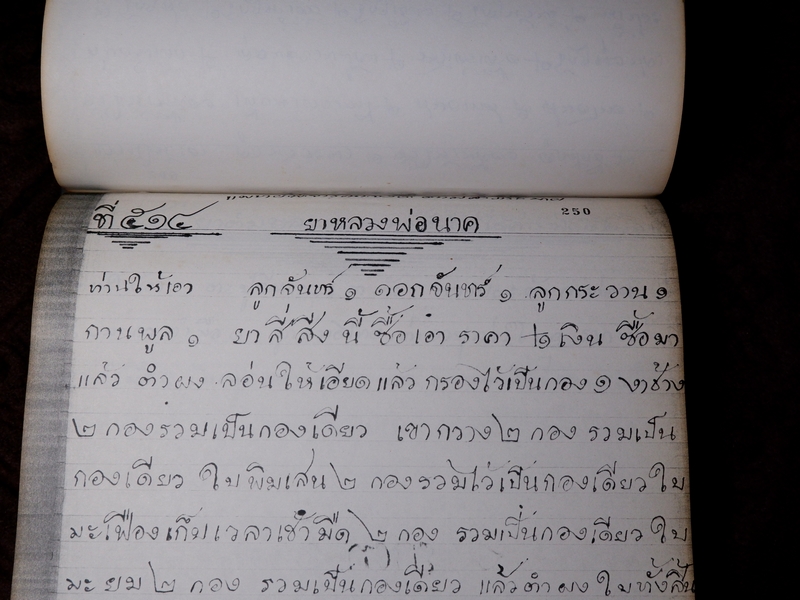 250
ที่ ๕๑๔ ยาหลวงพ่อนาค
ท่านให้เอา ลูกจันทร์ ๑ ดอกจันทร์ ๑ ลูกกระวาน ๑
กานพูล ๑ ยาสี่สิ่งนี้ซื้อเอา ราคา ๑ เงิน ซื้อมา
แล้ว ตำผง ล่อนให้เอียดแล้ว กรองไว้เป็นกอง ๑ งาช้าง
๒ กองรวมเป็นกองเดียว เขากวาง ๒ กอง รวมเป็น
กองเดียว ใบพิมเสน ๒ กองรวมไว้เป็นกองเดียว ใบ
มะเฟืองเก็บเวลาเช้ามืด ๒ กอง รวมเป็นกองเดียว ใบ
มะยม ๒ กอง รวมเป็นกองเดียว แล้วตำผง ใบทั้งสิ้น